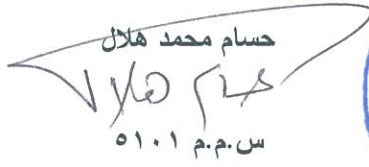 حسام محمد هلال
حسام هلال
س.م.م ٥١٠١